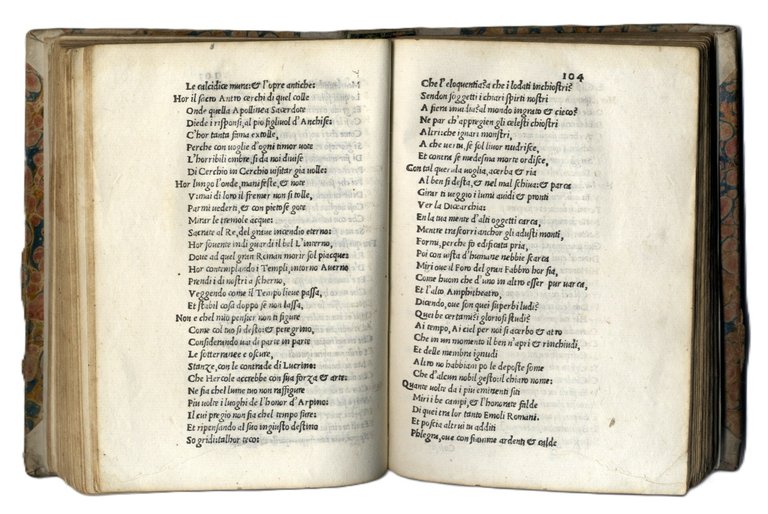 Le calcidice mura: & l'opre antiche:
Hor il sacro Antro cerchi di quel colle
Onde quella Apollinea Sacerdote
Diede i risponsi, al pio figliuol d'Anchise:
C'hor tanta fama extolle,
Perche con voglie d'ogni timor vote
L'horribili ombre, si da noi divise
Di Cerchio in Cerchio visitar gia volle:
Hor lungo l'onde, manifeste, & note
V'mai di loro il fremer non si tolle,
Parmi vederti, & con pietose gote
Mirar le tremole acque:
Sacrate al Re, del grave incendio eterno:
Hor sovente indi guardi il bel Linterno,
Dove ad quel gran Roman morir sol piacque:
Hor contemplando i Templi, intorno Averno
Prendi i di nostri a scherno,
Veggendo come il Tempo lieve passa,
Et stabil cosa doppo se non lassa,
Non e chel mio pensier non ti figure
Come col tuo si desto: & peregrino,
Considerando vai di parte in parte
Le sotterranee & oscure,
Stanze, con le contrade di Lucrino:
Che Hercole accrebbe con sua forza & arte:
Ne sia chel lume tuo non raffigure
Piu volte i luoghi de l'honor d'Arpino:
Il cui pregio non sia chel tempo fure:
Et ripensando al suo ingiusto destino
So gridi talhor teco:
104
Che l'eloquentia & a che i lodati inchiostri
Sendon soggetti i chiari spirti nostri
A fiera invidia al mondo ingrato & cieco?
Ne par ch'appregien gli celesti chiostri
Altri che ignari monstri,
A che se sol livor nudrisce,
Et contra se medesma morte ordisce,
Con tal querula voglia, acerba & ria
Al ben si desta, & nel mal schiva: & parca
Girar ti veggio i lumi avidi & pronti
Ver la Dicearchia:
En la tua mente d'alti oggetti carca,
Mentre trascorri anchor gli adusti monti,
Formi, perche fo edificata pria,
Poi con vista d'humane nebbie scarca
Miri ove il Foro del gran Fabbro hor sia,
Come huom che d'uno in altro esser par varca,
Et l'alto Amphitheatro,
Dicendo, ove son quei superbi ludi?
Quei be certami: i gloriosi studi?
Ai tempo, Ai ciel per noi si acerbo & atro
Che in un momento il ben n'apri & rinchiudi,
Et delle membra ignudi
Altro no habbiam po le deposte some
Che d'alcun nobil gesto il chiaro nome:
Quante volte da i piu eminenti siti
Miri i be campi, & l'honorate falde
Di quei tra lor tanto Emoli Romani.
Et poscia altrui tu additi
Phlegra, ove con fiamme ardenti & calde